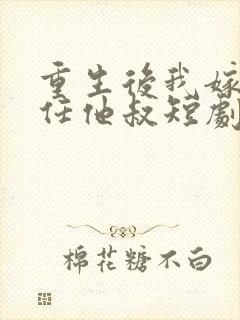 重生後我嫁
任他叔短劇
棉花糖不白